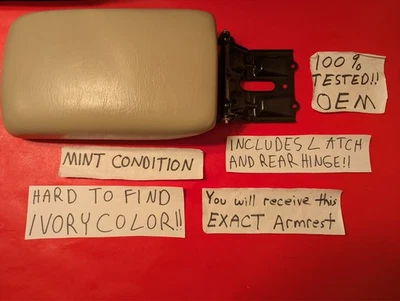 100%
TESTED!!
OEM
MINT CONDITION
INCLUDES LATCH
AND REAR HINGE!!
HARD TO FIND
IVORY COLOR!!
You will receive this
EXACT Armrest